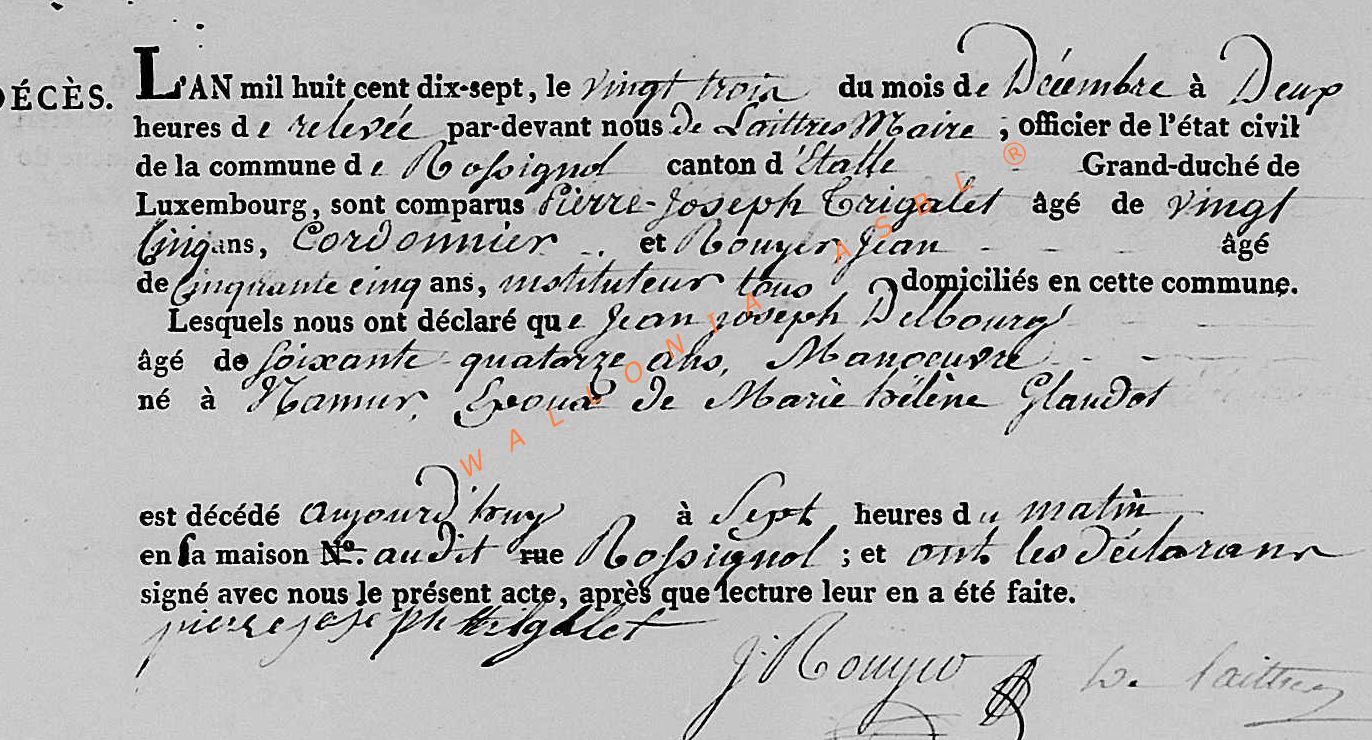 DÉCÈS. L'AN mil huit cent dix-sept, le vingt trois du mois de Décembre à Deux
heures de relevée par-devant nous de Laittres Maire, officier de l'état civil
de la commune de Rossignol canton d'Etalle Grand-duché de
Luxembourg, sont comparus Pierre-Joseph Trigalet âgé de vingt
Cinq ans, Cordonnier et Rouyer Jean âgé
de Cinquante cinq ans, instituteur tous domiciliés en cette commune.
Lesquels nous ont déclaré que Jean joseph Delbourg
âgé de soixante quatorze ans, Manoeuvre
né à Namur, Epoux de Marie hélène Glaudot
est décédé aujourd'huy à Sept heures du matin
en sa maison N°. audit rue Rossignol ; et ont les déclarans
signé avec nous le présent acte, après que lecture leur en a été faite.
pierre joseph trigalet
J. Rouyer De Laittres
WALLONIA ASBL ®